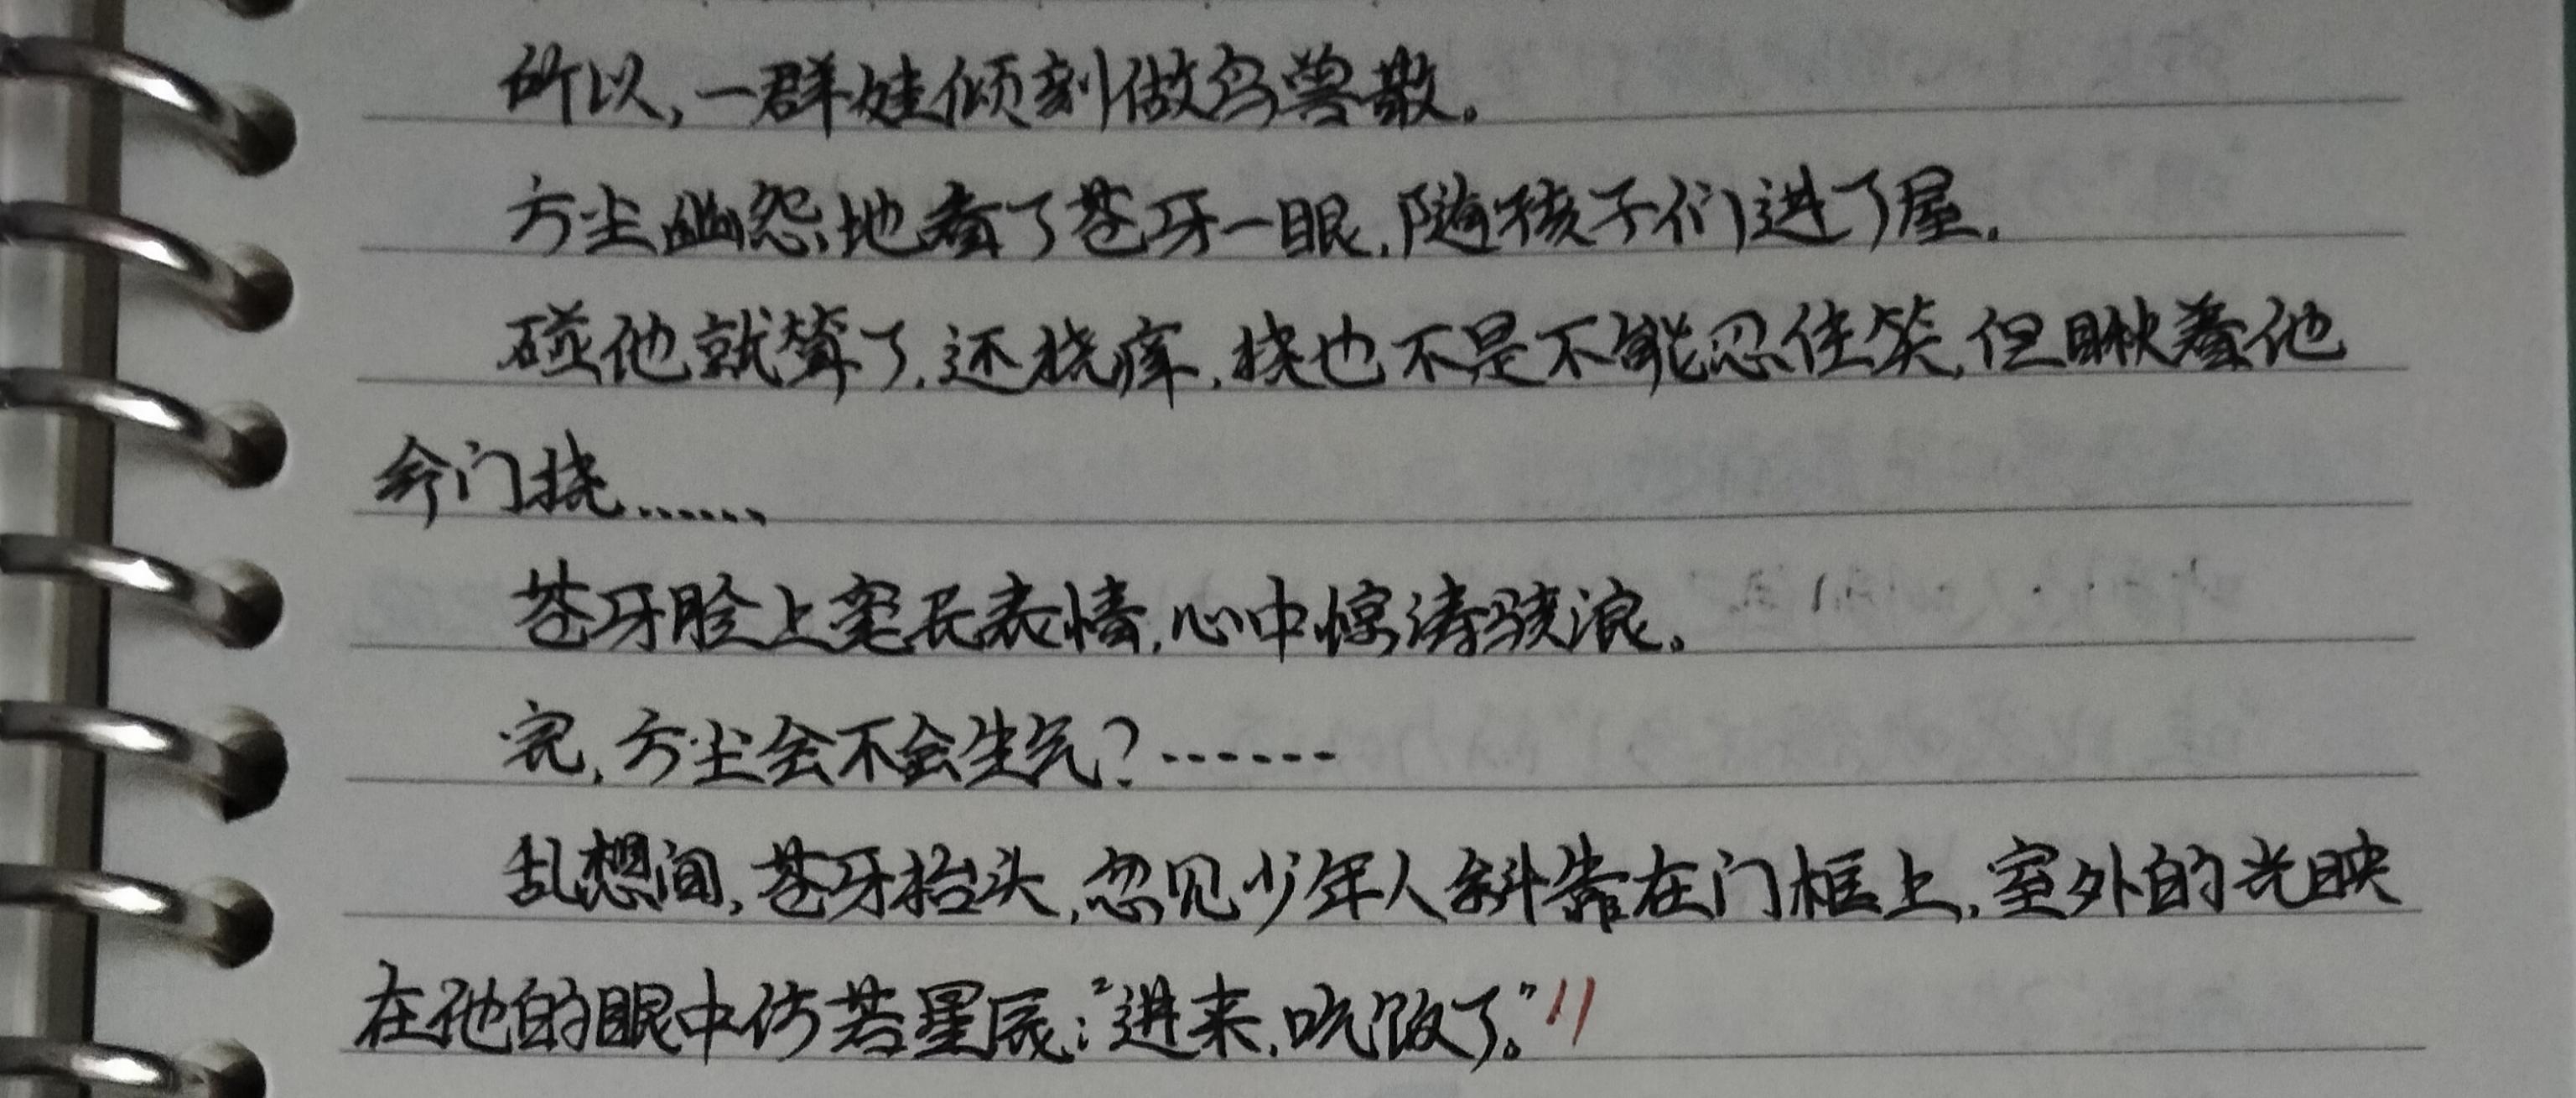 所以，一群娃倾刻做鸟兽散。
方尘幽怨地看了苍牙一眼，随孩子们进了屋。
碰他就算了，还挠痒，挠也不是不能忍住笑，但瞅着他
令门挠……
苍牙脸上毫无表情，心中惊涛骇浪。
完，方尘会不会生气？……
乱想间，苍牙抬头，忽见少年人斜靠在门框上，室外的光映
在他的眼中仿若星辰：“进来，吃饭了。”